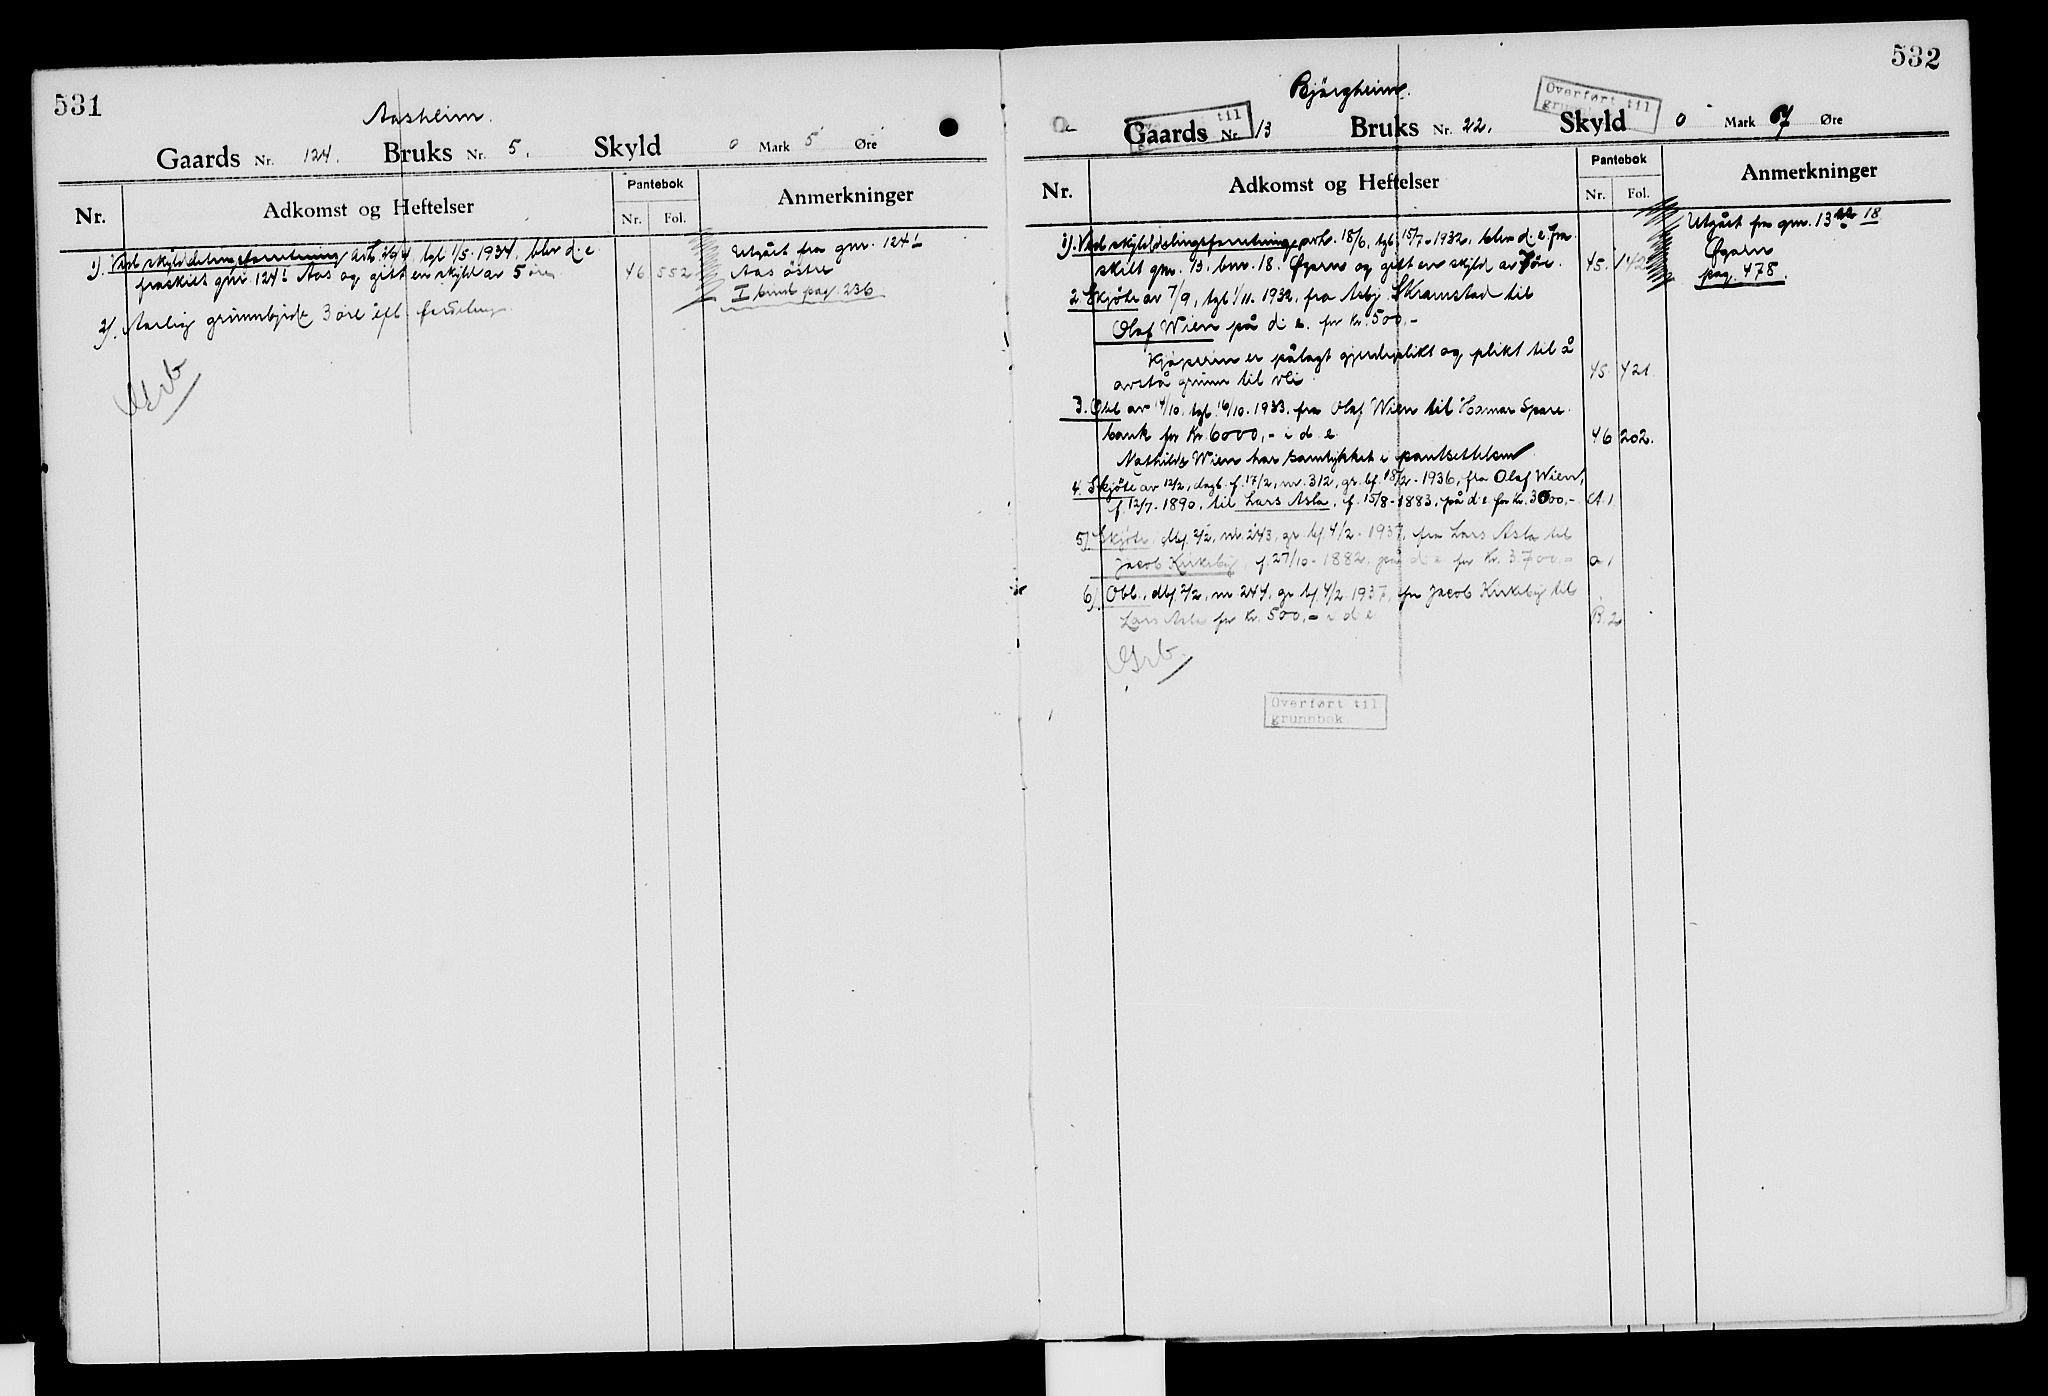 531
Aasheim.
Gaards Nr. 124. Bruks Nr. 5. Skyld 0 Mark 5 Øre
Nr. Adkomst og Heftelser Pantebok Nr. Fol. Anmerkninger
1). Ved skylddelingsforretning avh. 26/4 tgl 1/5. 1934. blev d. e.
fraskilt gnr. 124¹ Aas og gitt en skyld av 5 øre. 46 552
2). Aarlig grunnbyrde 3 øre efl. fordeling.
Grb
Utgått fra gnr. 124¹
Aas östre
I bind pag. 236
532
Bjørgheim.
Overført til
Gaards Nr. 13 Bruks Nr. 22. Skyld 0 Mark 7 Øre
til
Nr. Adkomst og Heftelser Pantebok Nr. Fol. Anmerkninger
1). Ved skylddelingsforretning avh. 18/6, tgl. 15/7-1932, blev d. e. fra-
skilt gnr. 13. bnr. 18. Øgarn og gitt en skyld av 7 øre. 45. 142
2. Skjøte av 7/9, tgl 1/11. 1932, fra Asbj. Skramstad til
Olaf Wien på d. e. for kr. 500.-
Kjøperen er pålagt gjerdeplikt og plikt til å
avstå grunn til vei. 45. 421.
3. Obl av 14/10. tgl. 16/10. 1933. fra Olaf Wien til Hamar Spare-
bank for Kr. 6000,- i d. e. 46 202.
Mathilde Wien har samtykket i pantsettelsen
4. Skjøte av 12/2, dagb. f. 17/2, nr. 312, gr. bf. 18/2-1936, fra Olaf Wien,
f. 12/7-1890, til Lars Asla, f. 15/8-1883, på d. e. for Kr. 3000,- A.1.
5). Skjøte, dbf. 2/2, nr. 243, gr. bf. 4/2-1937, fra Lars Asla til
Jacob Kirkeby, f. 27/10-1882, på d e for Kr. 3700,- a 1
6). Obl., dbf 2/2, nr 244, gr bf 4/2 1937, fra Jacob Kirkeby til
Lars Asla for Kr. 500,- i d e B. 2
Grb.
Overført til
grunnbok
Utgått fra gnr. 13 18
Øgarn
pag. 478.